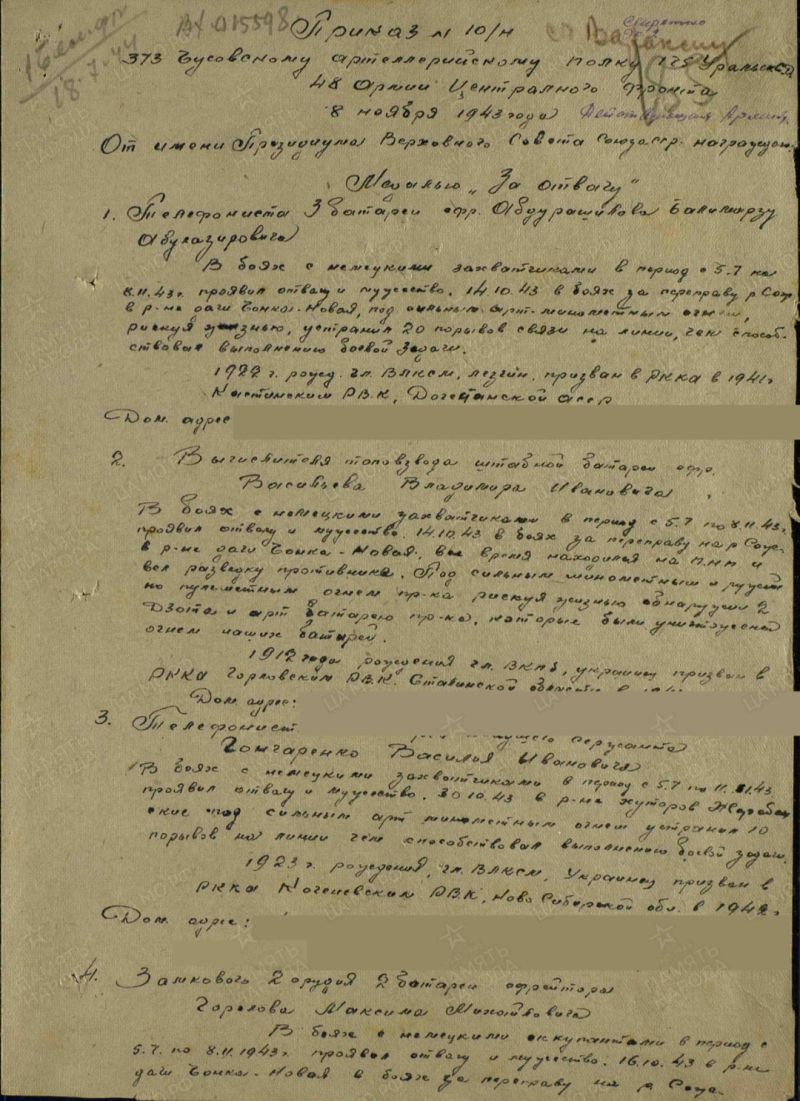 18.7.44
Приказ № 10/н
Секретно
373 Чусовскому артеллерийскому полку 175 Уральской
48 Армии Центрального фронта
8 ноября 1943 года Действующая Армия
От имени Президиума Верховного Совета Союза ССР награждаю:
Медалью „За отвагу"
1. Телефониста 3 батареи ефр. Абдурашидова
В боях с немецкими захватчиками в период с 5.7 по
8.11.43 г. проявил отвагу и мужество. 14.10.43 в боях за переправу р. Сож
в р-не дачи Чонка-Новая, под сильным арт-минометным огнем,
рискуя жизнью, устранил 20 порывов связи на линии, чем способ-
ствовал выполнению боевой задачи.
1922 г. рожд. чл. ВЛКСМ, лезгин, призван в РККА в 1941 г
РВ.К, АССР
Дом. адрес
2. Вычислителя топовзвода штабной батареи ефр.
Васильева Владимира Ивановича
В боях с немецкими захватчиками в период с 5.7 по 8.11.43 г.
проявил отвагу и мужество. 14.10.43 в боях за переправу на р. Сож
в р-не дачи Чонка-Новая, все время находился на П.НП и
вел разведку противника. Под сильным минометным и ружей
но пулеметным огнем пр-ка рискуя жизнью обнаружил 2
Дзота и арт батарею пр-ка, которые были уничтожены
огнем наших батарей.
1912 года рождения чл. ВКПб, украинец призван в
РККА Горловским РВ.К. Сталинской области в
Дом. адрес:
3. Телефонист сержанта
Гончаренко Василья Ивановича
В боях с немецкими захватчиками в период с 5.7 по 11.11.43
проявил отвагу и мужество. 30.10.43 в р-не хуторов
под сильным арт минометным огнем устранил 10
порывов на линии чем способствовал выполнению боевой задачи.
1923 г. рождения, чл. ВЛКСМ, Украинец призван в
РККА Коченевским РВ.К, Ново Сибирской обл. в 1942 г
Дом. адрес:
4. Замкового 2 орудия 2 батареи ефрейтора
Горелова Максима Михайловича
В боях с немецкими оккупантами в период с
5.7. по 8.11.1943 г. проявил отвагу и мужество. 16.10.43 в р-не
дачи Чонка-Новая в боях за переправу на р. Сож.